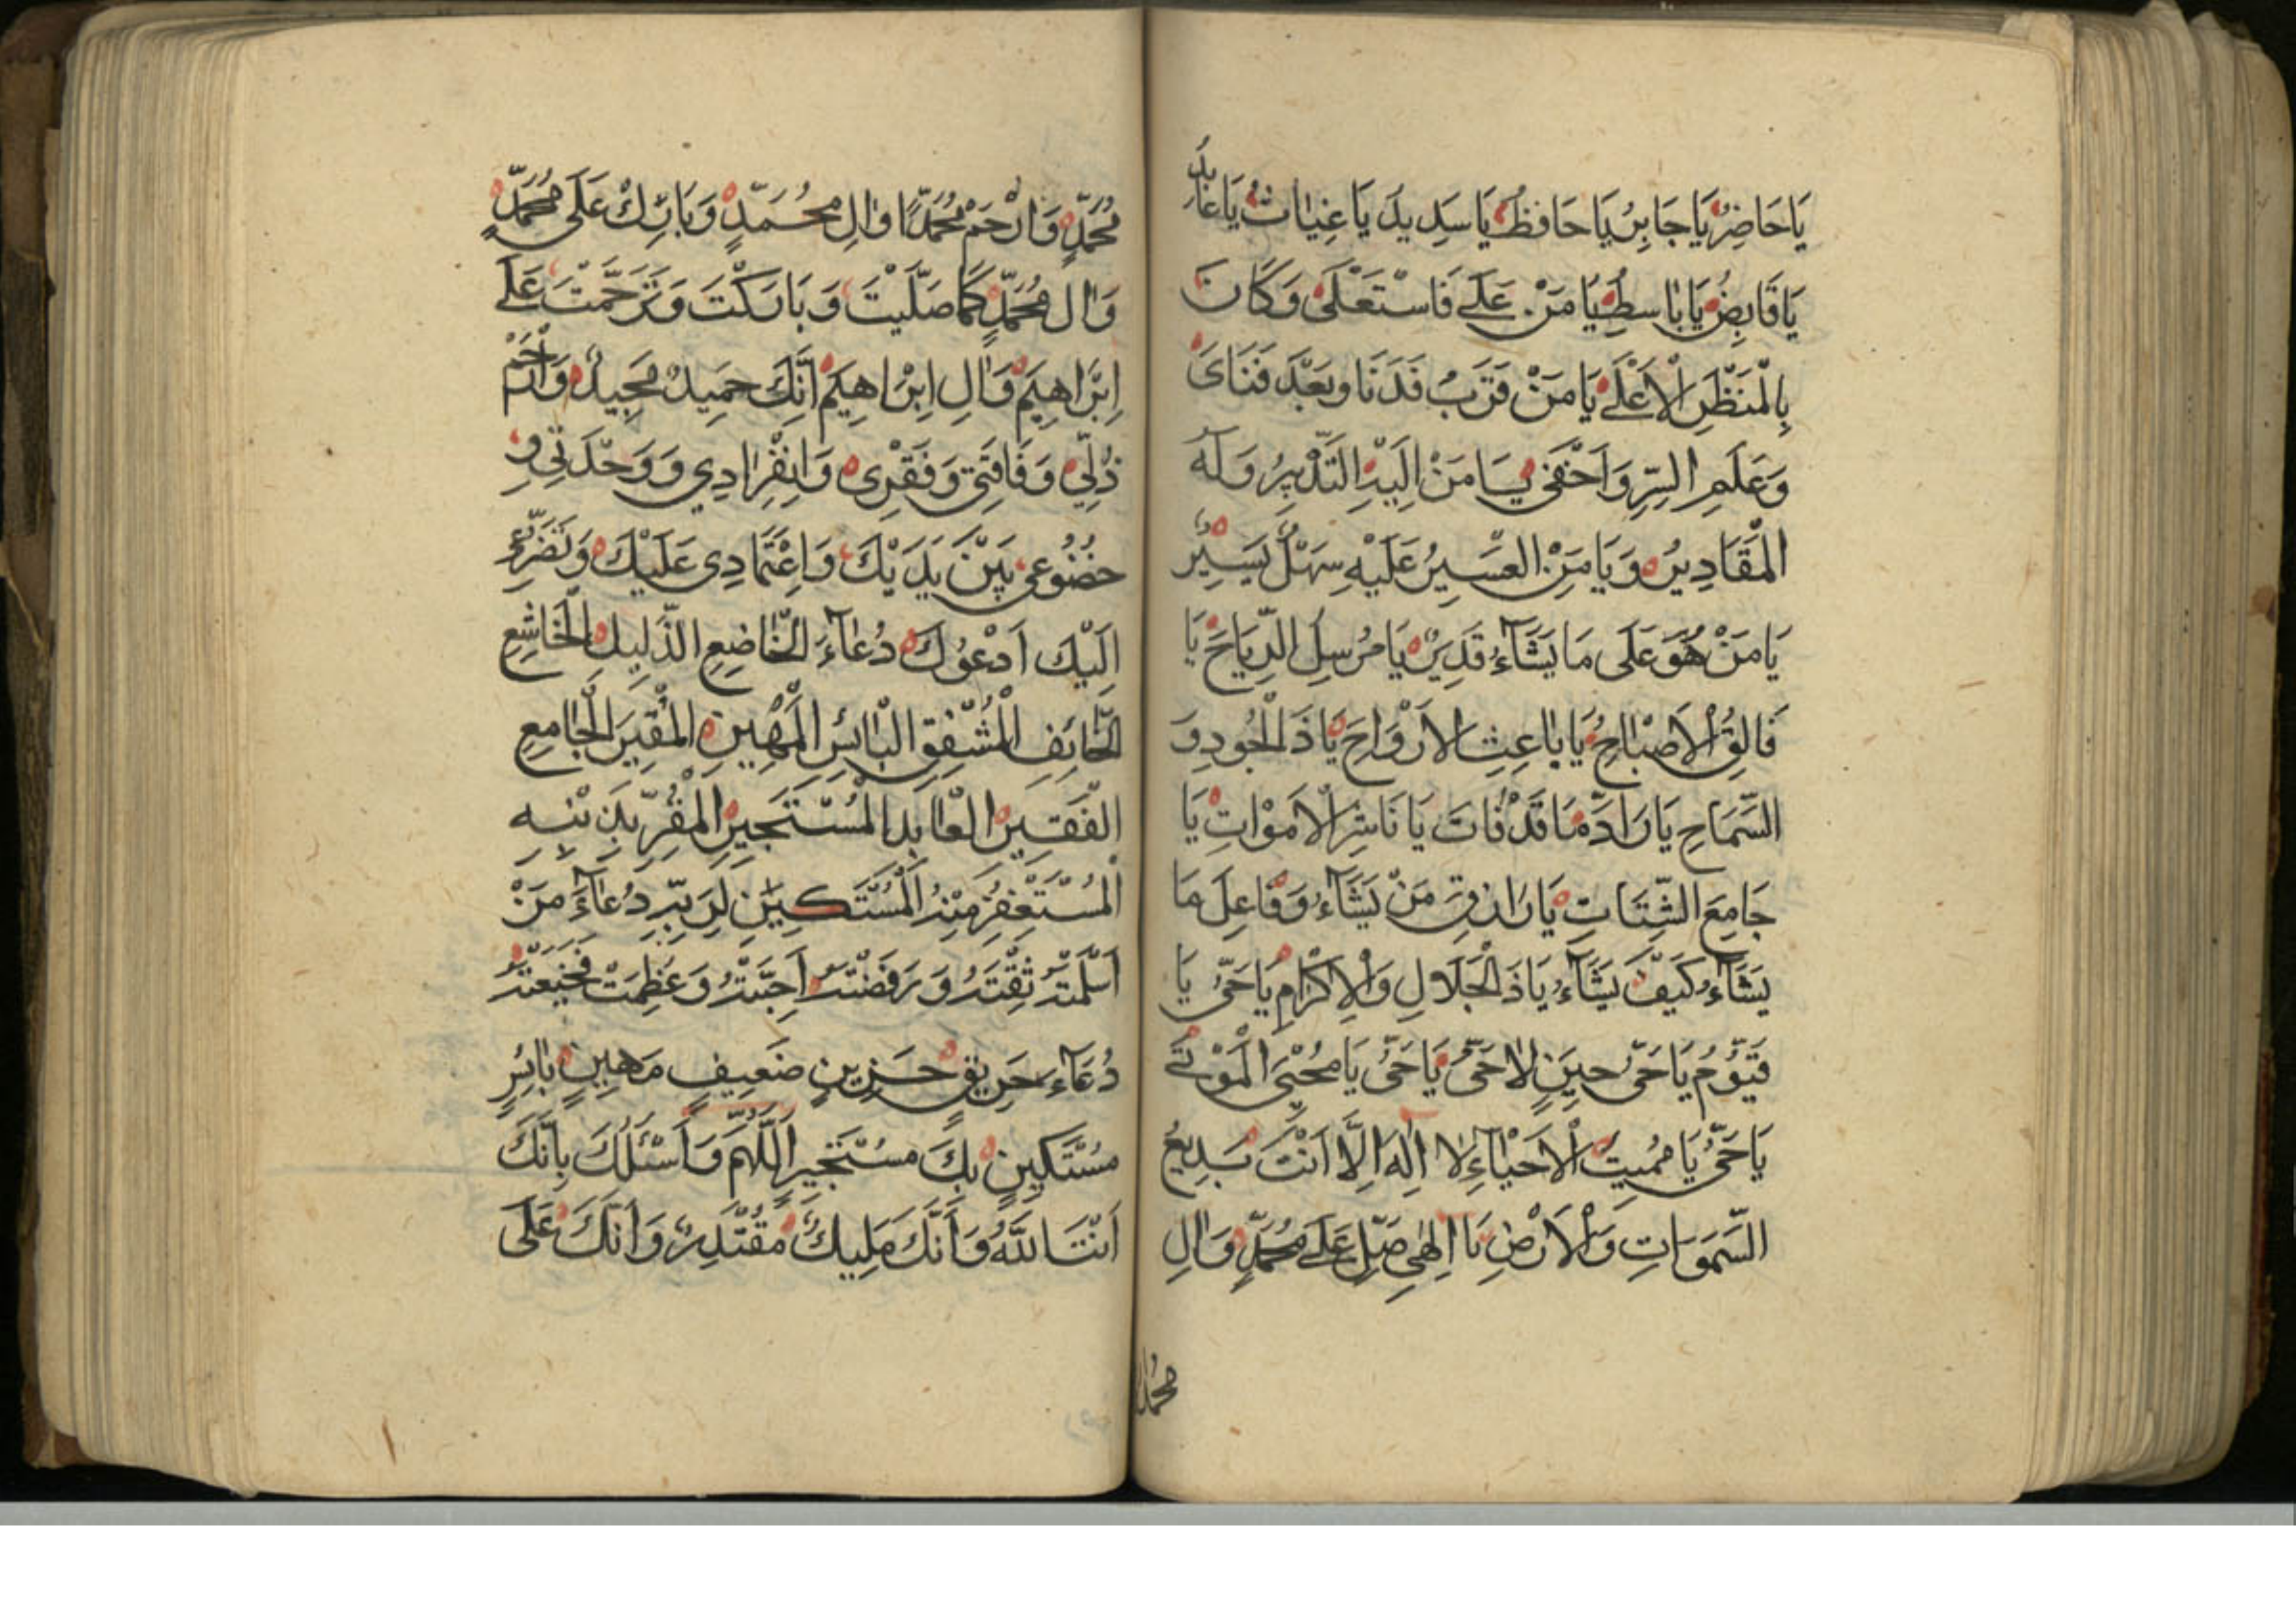 يَا حَاضِرُ يَا جَابِرُ يَا حَافِظُ يَا سَدِيدُ يَا غِيَاثُ يَا عَابِدُ
يَا قَابِضُ يَا بَاسِطُ يَا مَنْ عَلَى فَاسْتَعْلَى وَكَانَ
بِالْمَنْظَرِ الْاَعْلَى يَا مَنْ قَرَبُ فَدَنَا وَبَعْدَ فَنَاىَ
وَعَلَمِ السِّرِّ وَاَخْفَى يَا مَنْ اِلَيْهِ التَّدْبِيرُ وَلَهُ
الْمَقَادِيرُ وَيَا مَنِ الْعَسِيرُ عَلَيْهِ سَهْلٌ يَسِيْرٌ
يَا مَنْ هُوَ عَلَى مَا يَشَآءُ قَدِيرٌ يَا مُرْسِلَ الرِّيَاحِ يَا
فَالِقُ الْاَصْبَاحُ يَا بَاعِثِ الْاَرْوَاحِ يَا ذَا لْجُودِ وَ
السَّمَاحِ يَا رَادَّ مَا قَدْ فَاتَ يَا نَاشِرَ الْاَمْوَاتِ يَا
جَامِعَ الشِّتَاتِ يَا رَازِقَ مَنْ يَشَآءُ وَفَاعِلَ مَا
يَشَآءُ كَيْفَ يَشَآءُ يَا ذَ الْجَلَالِ وَالْاِكْرَامِ يَا حَىُّ يَا
قَيُّوْمُ يَا حَىُّ حِيَنِ لَا حَىُّ يَا حَىُّ يَا مُحْيِىَ الْمَوْتَى
يَا حَىُّ يَا مُمِيتَ الْاَحْيَاءِ لَا اِلٰهَ اِلَّا اَنْتَ بَدِيْعُ
السَّمَوَاتِ وَالْاَرْضِ يَا اِلٰهِى صَلِّ عَلَى مُحَمَّدٍ وَاٰلِ
محمد
مُحَمَّدٍ وَارْحَمْ مُحَمَّدًا وَاٰلِ مُحَمَّدٍ وَبَارِكْ عَلَى مُحَمَّدٍ
وَاٰلِ مُحَمَّدٍ كَمَا صَلَّيْتَ وَبَارَكْتَ وَتَرَحَّمْتَ عَلَى
اِبْرَاهِيَمْ وَاٰلِ اِبْرَاهِيَمْ اِنَّكَ حَمِيدٌ مَجِيدٌ وَارْحَمْ
ذُلِّى وَفَاقَتِى وَفَقْرِى وَانْفِرَادِي وَوَحْدَتِى وَ
خُضُوعِى بَيْنَ يَدَيْكَ وَاِعْتَمَادِى عَلَيْكَ وَتَضَرُّعِى
اِلَيْكَ اَدْعُوكَ دُعَآءَ الْخَاضِعِ الذَّلِيلِ الْخَاشِعِ
الْخَائِفِ الْمُشْفِقِ الْبَائِسِ الْمَهْيِنِ الْحَقِيرِ الْجَامِعِ
الْفَقِيرِ الْعَابِدِ الْمُسْتَجِيرِ الْمُقِرِّ بِذَنْبِهِ
الْمُسْتَغْفِرِ مِنْهُ الْمُسْتَكِيَنِ لِرَبِّهِ دُعَآءَ مَنْ
اَسْلَمَتْهُ ثِقْتَهُ وَرَفَضْتُهُ اَحِبَّتُهُ وَعَظِمَتْ فَجِيْعَتُهُ
دُعَآءَ حَرِيقٍ حَزِينٍ ضَعِيفٍ مَهِينٍ بَائِسٍ
مُسْتَكِينٍ بِكَ مُسْتَجِيرٍ اَللّٰهُمَّ وَاَسْئَلُكَ بِاَنَّكَ
اَنْتَ اللّٰهُ وَاَنَّكَ مَلِيكٌ مُقْتَدِرٌ وَاَنَّكَ عَلَى